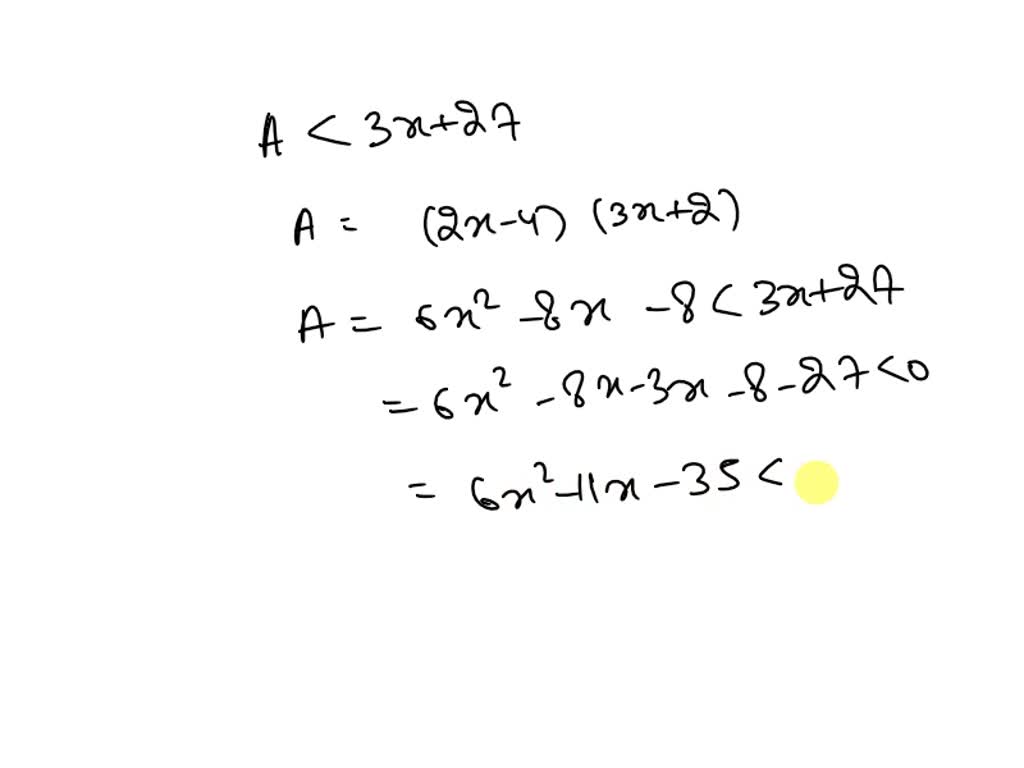 A < 3x+27
A = (2x-4) (3x+2)
A = 6x² -8x -8 < 3x+27
= 6x² -8x-3x -8-27<0
= 6x²-11x-35 <